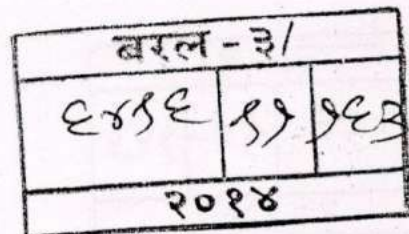 बरल - ३/
६४९६ ९१ १६३
२०१४